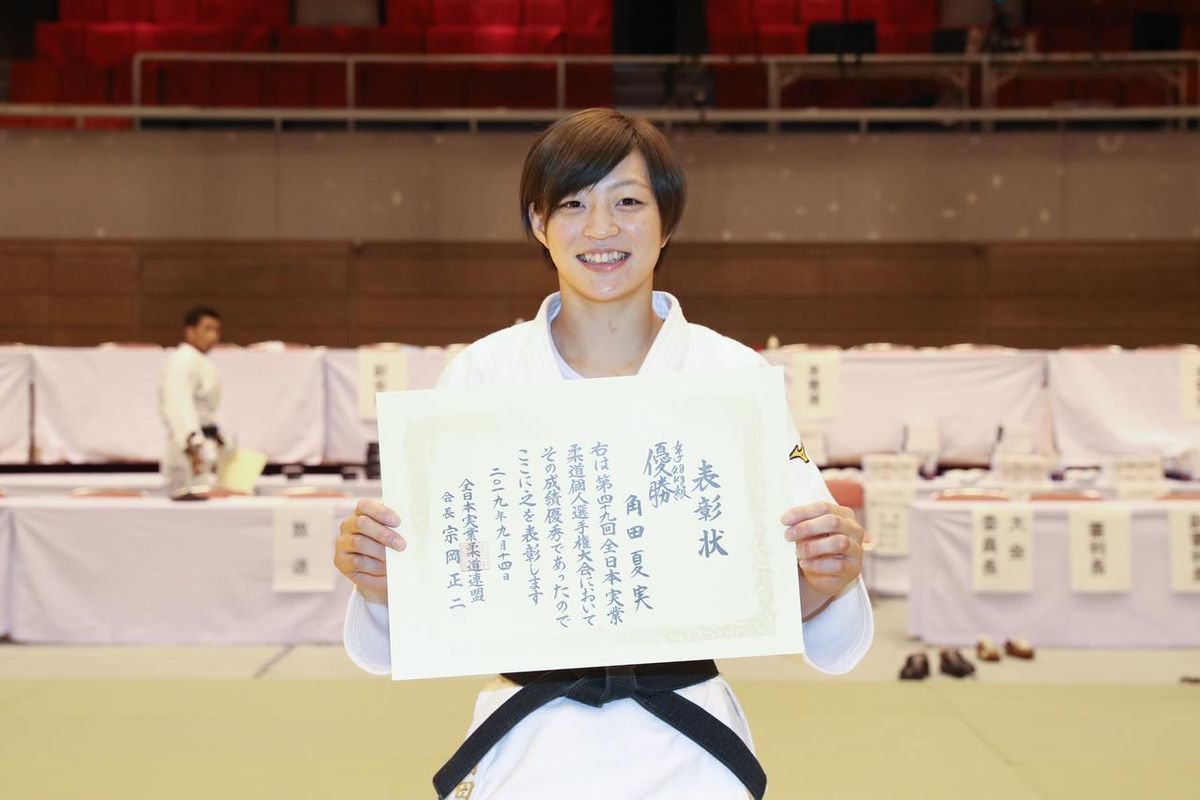 表彰状
女子48kg級
優勝
角田夏実
右は第四十九回全日本実業
柔道個人選手権大会において
その成績優秀であったので
ここに之を表彰します
二〇一九年九月十四日
全日本実業柔道連盟
会長 宗岡正二
大会
委員長
審判長
放送
田